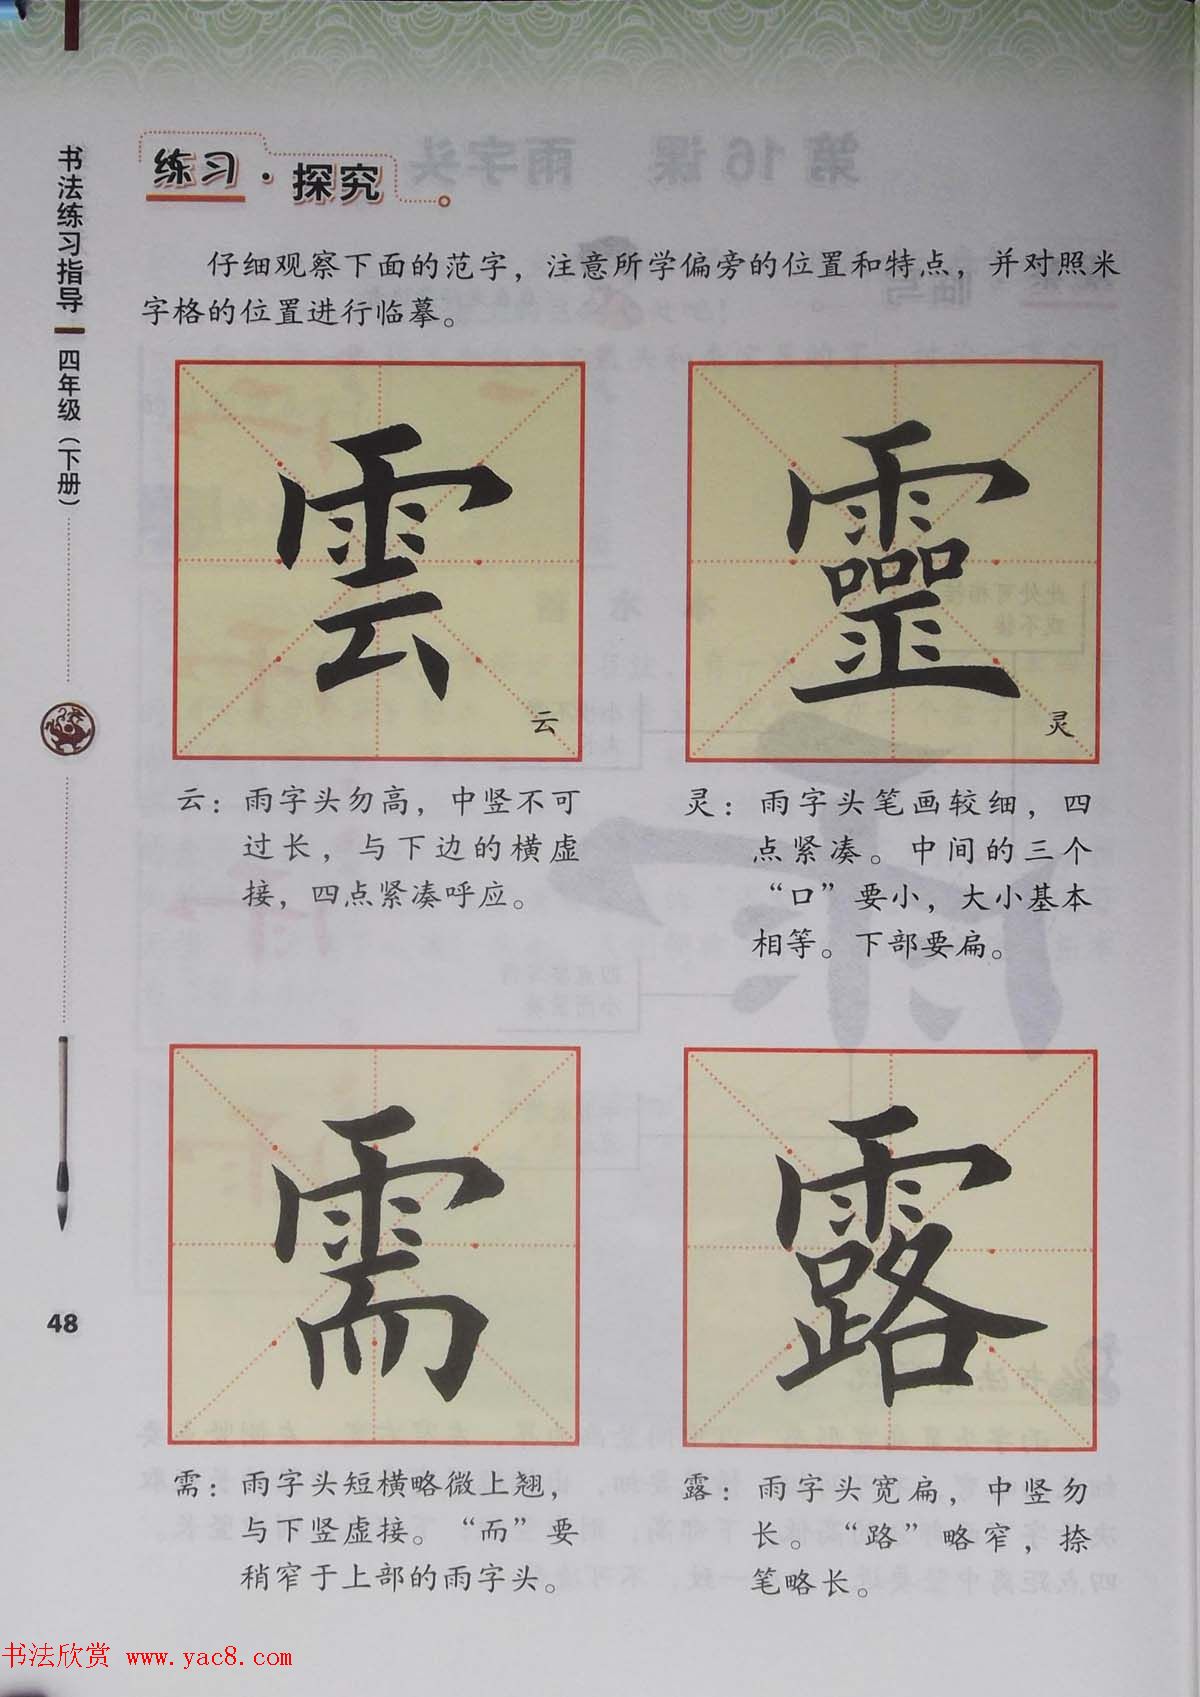 书法练习指导
四年级（下册）
练习·探究
仔细观察下面的范字，注意所学偏旁的位置和特点，并对照米
字格的位置进行临摹。
雲
云
靈
灵
云：雨字头勿高，中竖不可
过长，与下边的横虚
接，四点紧凑呼应。
灵：雨字头笔画较细，四
点紧凑。中间的三个
“口”要小，大小基本
相等。下部要扁。
需
露
需：雨字头短横略微上翘，
与下竖虚接。“而”要
稍窄于上部的雨字头。
露：雨字头宽扁，中竖勿
长。“路”略窄，捺
笔略长。
48
书法欣赏 www.yac8.com